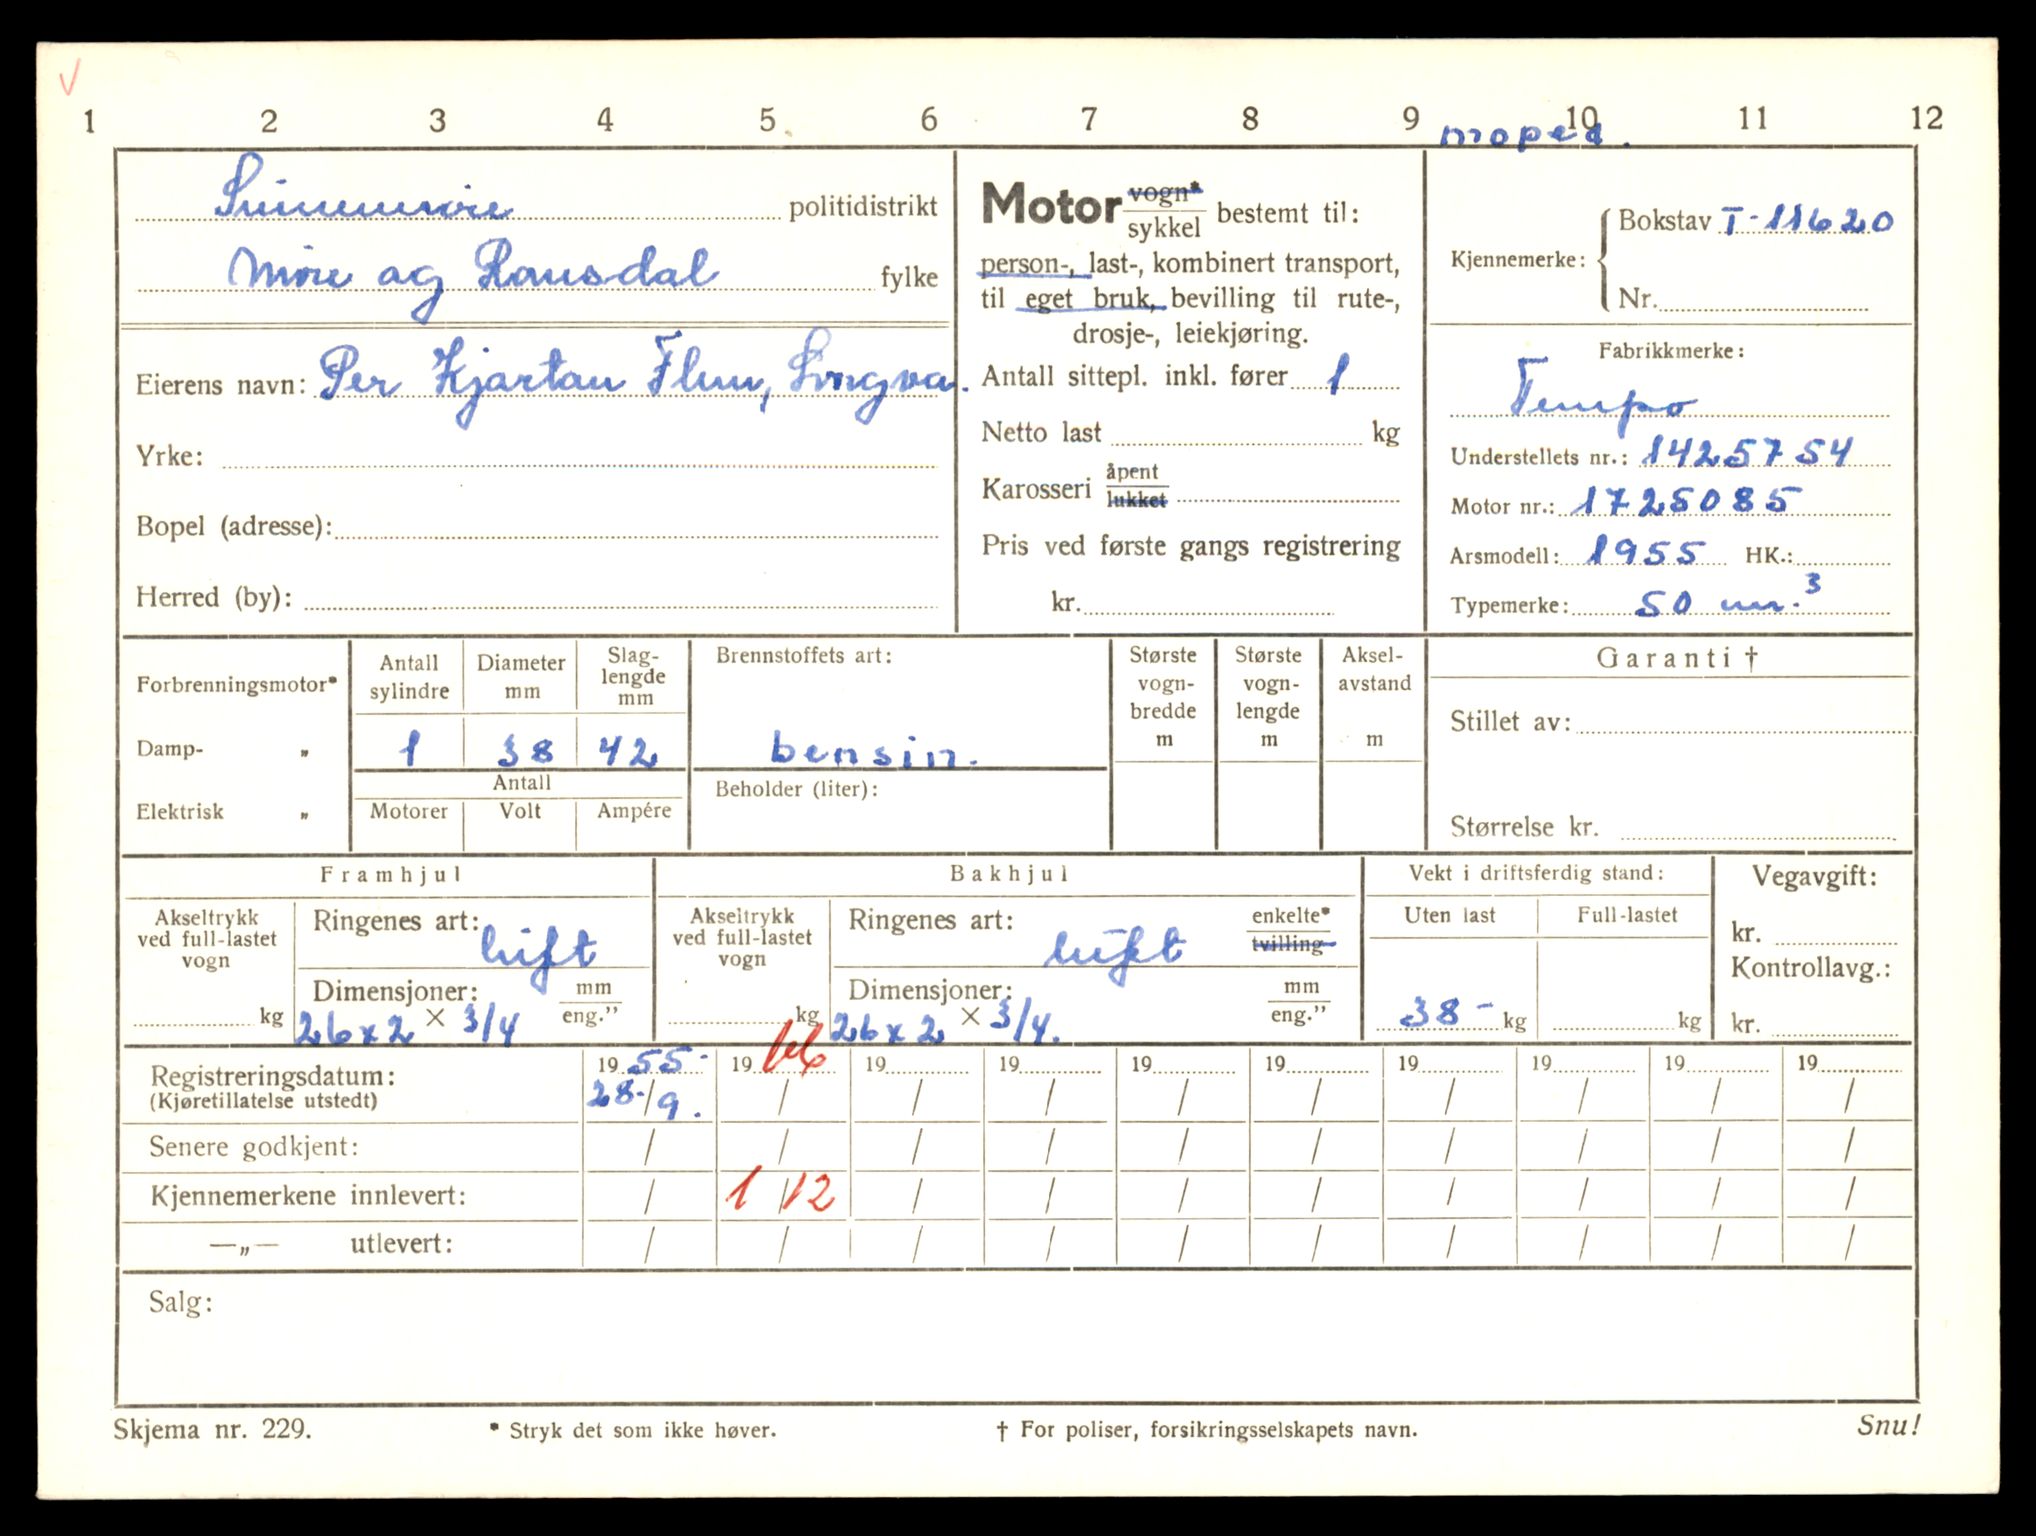 V
1 2 3 4 5 6 7 8 9 10 11 12
moped.
Sunnmøre politidistrikt
Møre og Romsdal fylke
Eierens navn: Per Kjartan Flem, Longva.
Yrke:
Bopel (adresse):
Herred (by):
Motor vogn* / sykkel bestemt til:
person-, last-, kombinert transport,
til eget bruk, bevilling til rute-,
drosje-, leiekjøring.
Antall sittepl. inkl. fører 1
Netto last kg
Karosseri åpent / lukket
Pris ved første gangs registrering
kr.
Kjennemerke: Bokstav T-11620
Nr.
Fabrikkmerke:
Tempo
Understellets nr.: 1425754
Motor nr.: 1725085
Arsmodell: 1955 HK.:
Typemerke: 50 cm.³
Forbrenningsmotor*
Damp- „
Elektrisk „
Antall sylindre
1
Diameter mm
38
Slag-lengde mm
42
Antall
Motorer Volt Ampére
Brennstoffets art:
bensin.
Beholder (liter):
Største vogn-bredde m
Største vogn-lengde m
Aksel-avstand m
Garanti †
Stillet av:
Størrelse kr.
Framhjul
Akseltrykk ved full-lastet vogn
kg
Ringenes art: luft
Dimensjoner: mm / eng.”
26 x 2 × 3/4
Bakhjul
Akseltrykk ved full-lastet vogn
kg
Ringenes art: luft enkelte* / tvilling
Dimensjoner: mm / eng.”
26 x 2 × 3/4.
Vekt i driftsferdig stand:
Uten last Full-lastet
38 - kg kg
Vegavgift:
kr.
Kontrollavg.:
kr.
Registreringsdatum: 19 55- 19 66 19 19 19 19 19 19 19 19
(Kjøretillatelse utstedt) 28./9. / / / / / / / / /
Senere godkjent: / / / / / / / / / /
Kjennemerkene innlevert: / 1/12 / / / / / / / /
—„— utlevert: / / / / / / / / / /
Salg:
Skjema nr. 229. * Stryk det som ikke høver. † For poliser, forsikringsselskapets navn. Snu!